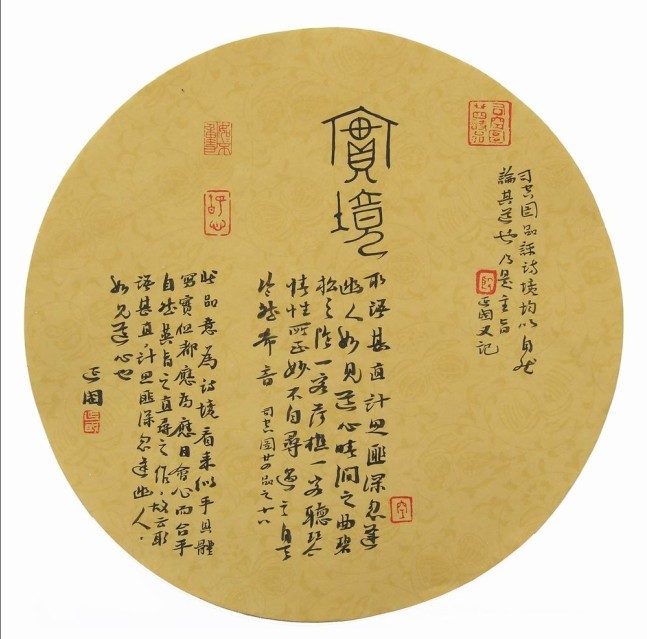 司空图品評诗境均以自然
論其道也乃是主旨
正国又记
實境
取語甚直计思匪深忽逢
幽人如见道心晴涧之曲碧
松之陰一客荷樵一客聽琴
情性所至妙不自尋遇之自天
泠然希音 司空图廿四品之十八
此品意為诗境看来似乎具體
寫實但都應為應目會心而合乎
自然英旨之直尋之作，故云取
語甚直，计思匪深忽逢幽人，
如见道心也
正国